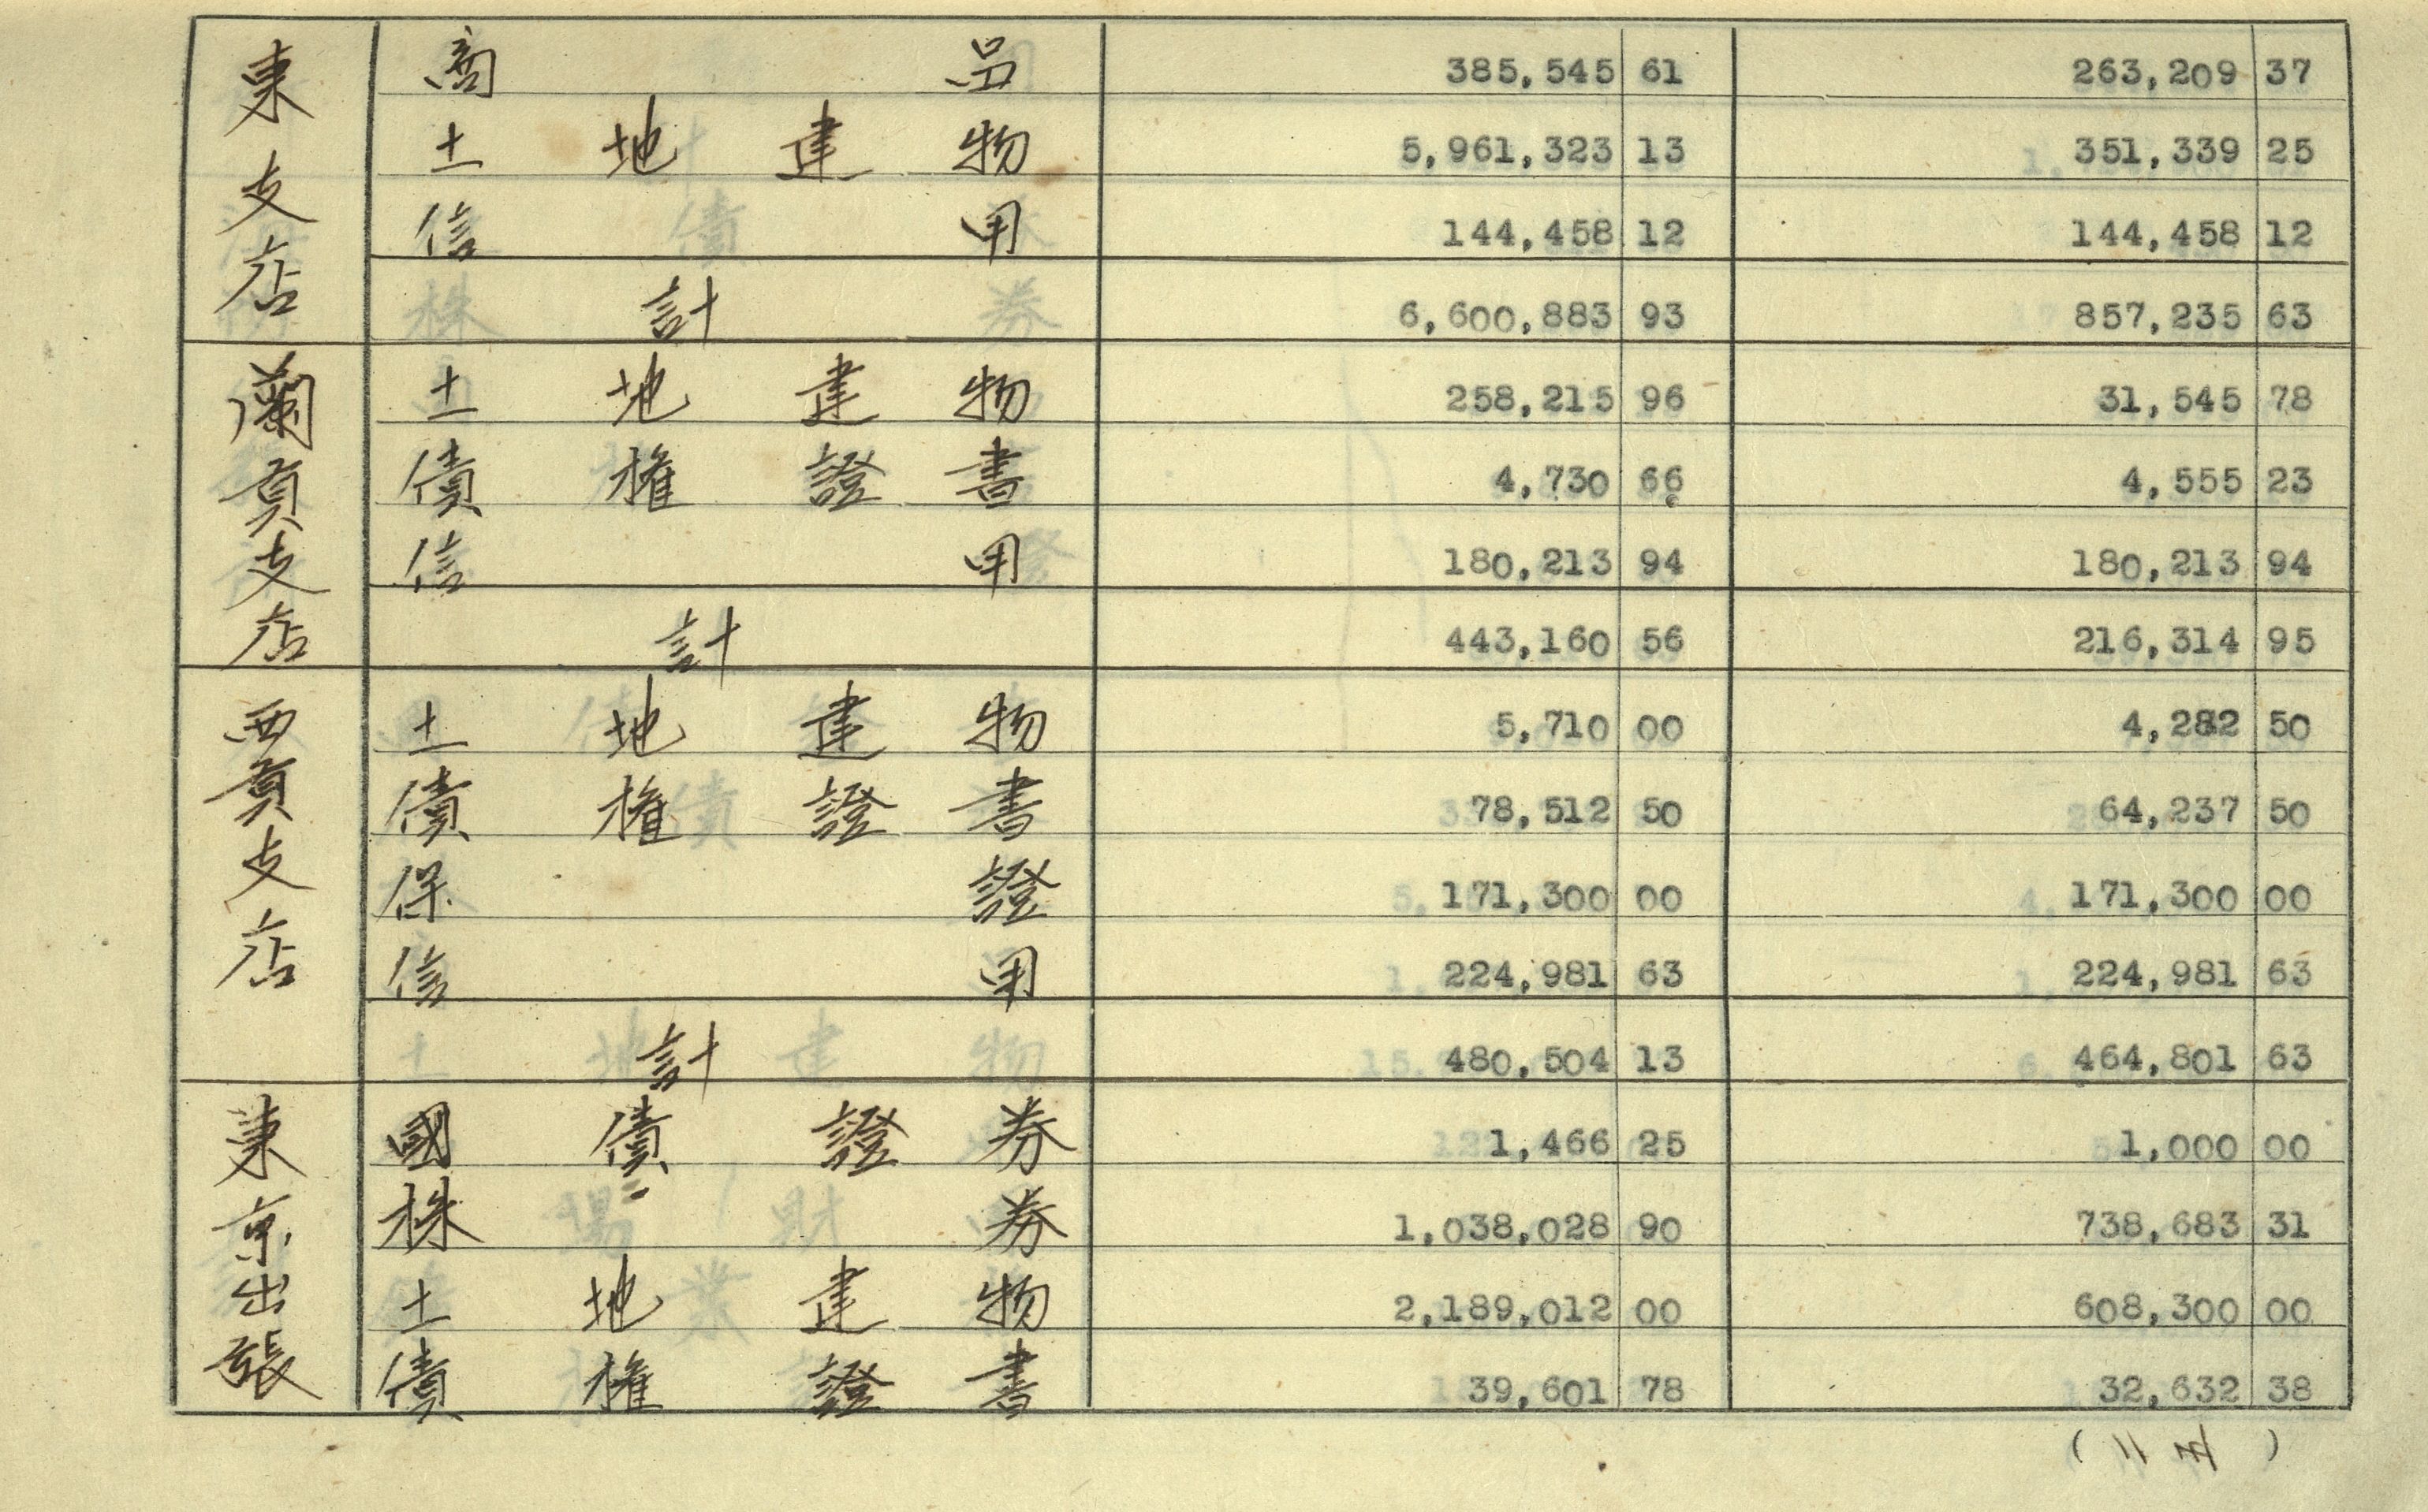 東支店
商品 385,545 61 263,209 37
土地建物 5,961,323 13 351,339 25
信用 144,458 12 144,458 12
計 6,600,883 93 857,235 63
蘭貢支店
土地建物 258,215 96 31,545 78
債権證書 4,730 66 4,555 23
信用 180,213 94 180,213 94
計 443,160 56 216,314 95
西貢支店
土地建物 5,710 00 4,282 50
債権證書 78,512 50 64,237 50
保證 171,300 00 171,300 00
信用 224,981 63 224,981 63
計 480,504 13 464,801 63
東京出張
國債證券 1,466 25 1,000 00
株券 1,038,028 90 738,683 31
土地建物 2,189,012 00 608,300 00
債権證書 39,601 78 32,632 38